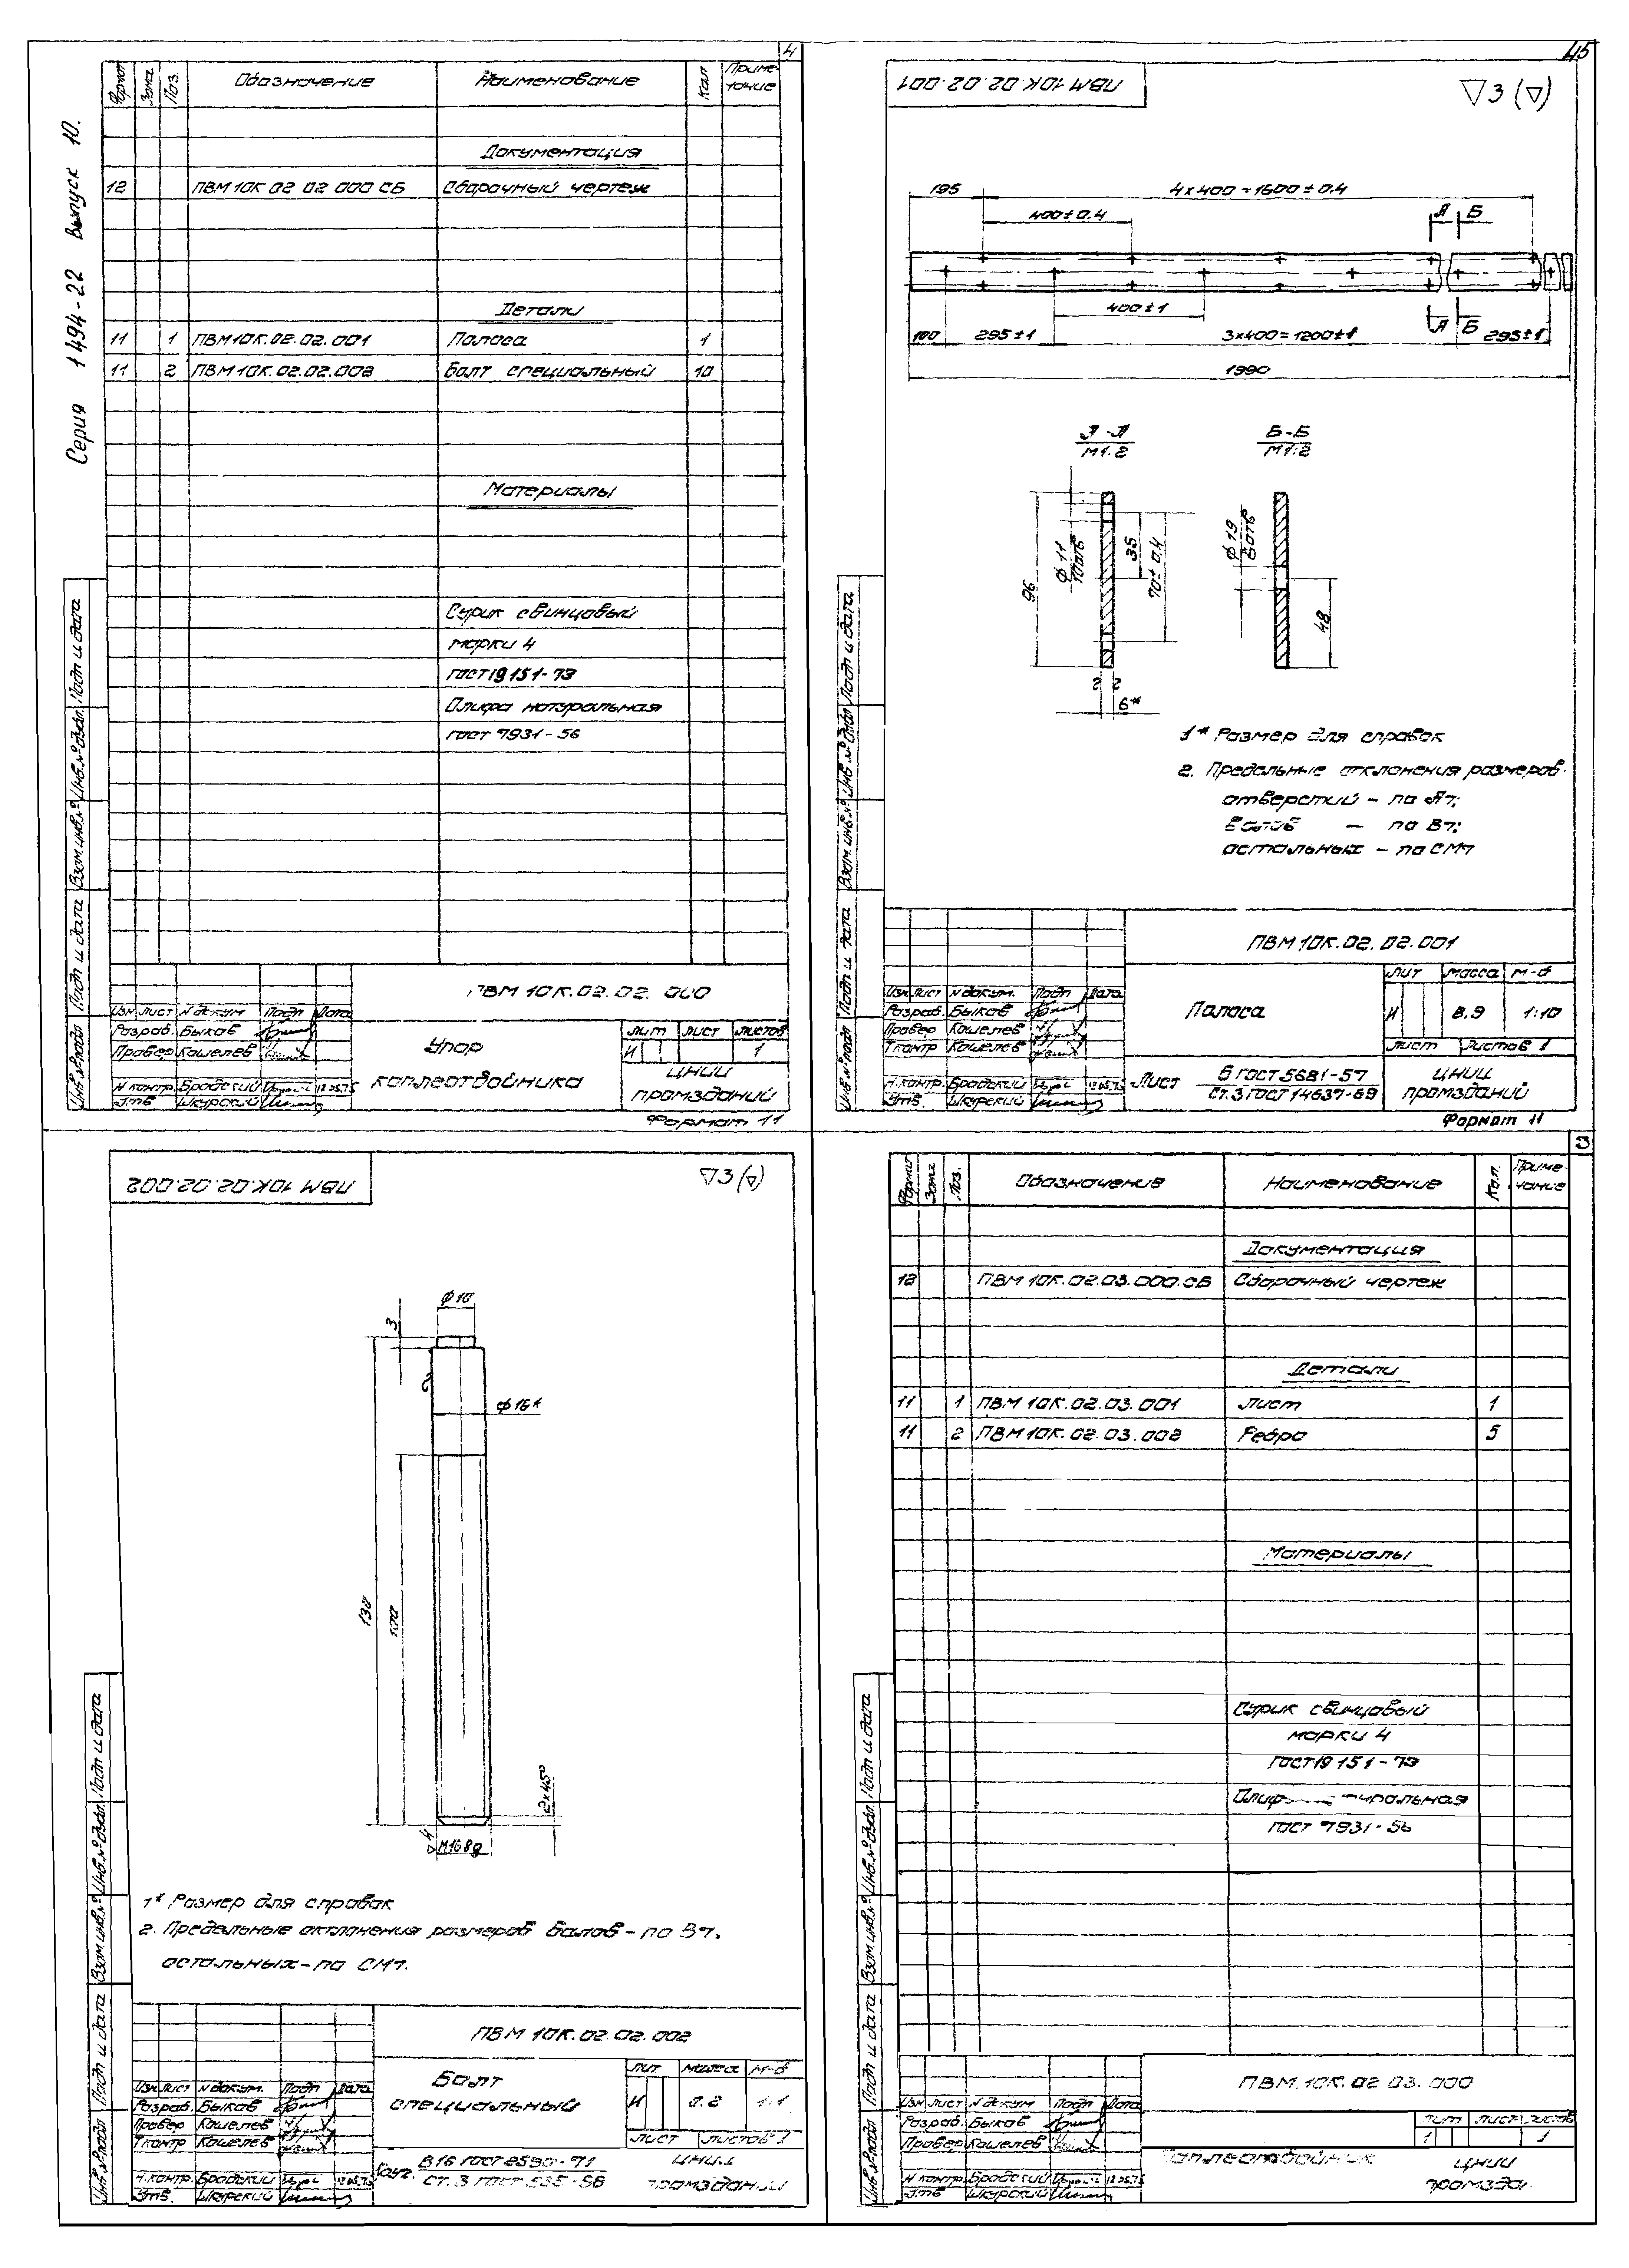 4
45
Серия 1494-22 Выпуск 10.
Формат Зона Поз. Обозначение Наименование Кол Приме-
чание
Документация
12 ПВМ 10К 02 02 000 СБ Сборочный чертеж
Детали
11 1 ПВМ 10К.02.02.001 Полоса 1
11 2 ПВМ 10К.02.02.002 Болт специальный 10
Материалы
Сурик свинцовый
марки 4
ГОСТ 19151-73
Олифа натуральная
ГОСТ 7931-56
Инв.№ подл Подп и дата Взам.инв.№ Инв.№ дубл. Подп и дата
ПВМ 10К.02.02.000
Изм Лист N докум Подп Дата
Разраб. Быков
Провер Кошелев
Н контр. Бродский
Утв Шкурский
Упор
каплеотбойника
Лит Лист Листов
И 1
ЦНИИ
промзданий
Формат 11
ПВМ 10К.02.02.001
▽3 (▽)
195 4 x 400 = 1600 ± 0.4
400 ± 0.4
А Б
400 ± 1
А Б
100 295 ± 1 3x400 = 1200 ± 1 295 ± 1
1990
А-А
М1:2
Б-Б
М1:2
96
ф 11
10отв
35
70 ± 0.4
2 2
6*
ф 19
6отв
48
1* Размер для справок
2. Предельные отклонения размеров:
отверстий - по А7;
валов - по В7;
остальных - по СМ7
Инв.№ подл Подп и дата Взам.инв.№ Инв.№ дубл Подп и дата
ПВМ 10К.02.02.001
Изм Лист N докум. Подп Дата
Разраб. Быков
Провер Кошелев
Т контр Кошелев
Н.контр. Бродский
Утв. Шкурский
Полоса
Лит Масса М-б
И 8.9 1:10
Лист Листов 1
Лист 6 ГОСТ 5681-57
Ст.3 ГОСТ 14637-69
ЦНИИ
промзданий
Формат 11
ПВМ 10К.02.02.002
▽3 (▽)
ф 10
3
2
ф 16*
130
100
2x45°
▽4
М16 8g
1* Размер для справок
2. Предельные отклонения размеров валов - по В7,
остальных - по СМ7.
Инв.№ подл Подп и дата Взам.инв.№ Инв.№ дубл. Подп и дата
ПВМ 10К.02.02.002
Изм Лист N докум. Подп Дата
Разраб. Быков
Провер Кошелев
Т контр Кошелев
Н.контр. Бродский
Утв. Шкурский
Болт
специальный
Лит Масса М-б
И 0.2 1:1
Лист Листов 1
Круг В16 ГОСТ 2590-71
Ст.3 ГОСТ 535-58
ЦНИИ
промзданий
Формат Зона Поз. Обозначение Наименование Кол. Приме-
чание
Документация
12 ПВМ 10К.02.03.000.СБ Сборочный чертеж
Детали
11 1 ПВМ 10К.02.03.001 Лист 1
11 2 ПВМ 10К.02.03.002 Ребро 5
Материалы
Сурик свинцовый
марки 4
ГОСТ 19151-73
Олифа натуральная
ГОСТ 7931-56
Инв.№ подл Подп и дата Взам.инв.№ Инв.№ дубл. Подп и дата
ПВМ.10К.02 03.000
Изм Лист N докум Подп Дата
Разраб. Быков
Провер Кошелев
Н контр. Бродский
Утв Шкурский
Каплеотбойник
Лит Лист Листов
1 1
ЦНИИ
промзда